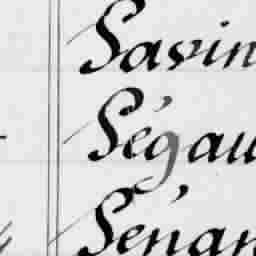 Savin
Ségau
Sénan